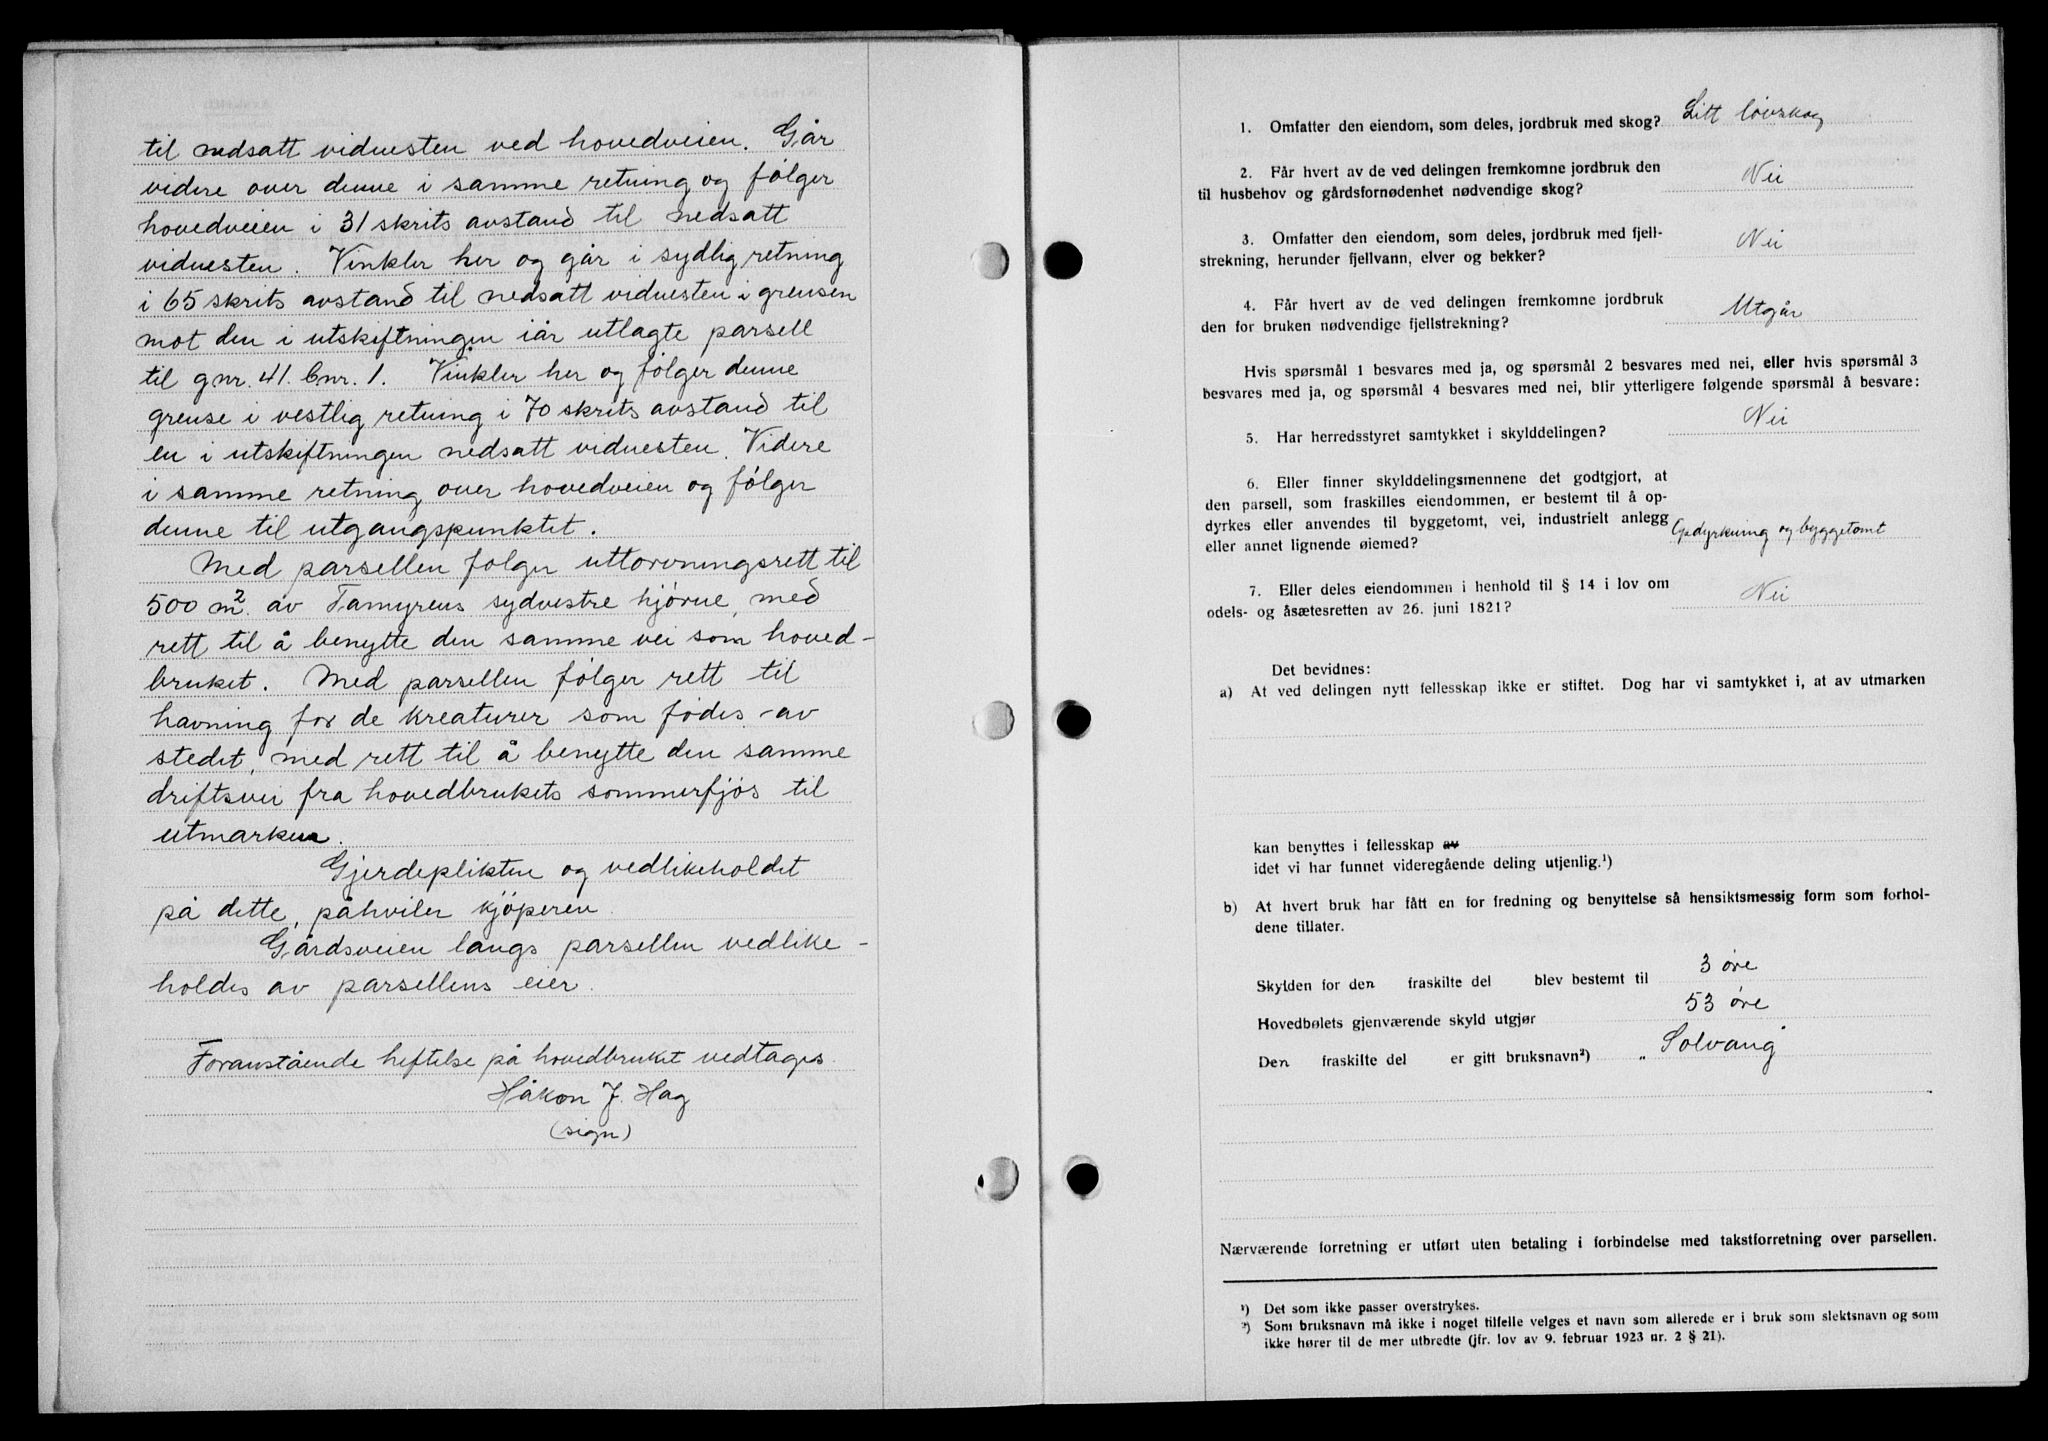 til nedsatt vidnesten ved hovedveien. Går
videre over denne i samme retning og følger
hovedveien i 31 skrits avstand til nedsatt
vidnesten. Vinkler her og går i sydlig retning
i 65 skrits avstand til nedsatt vidnesten i grensen
mot den i utskiftningen iår utlagte parsell
til gnr. 41. bnr. 1. Vinkler her og følger denne
grense i vestlig retning i 70 skrits avstand til
en i utskiftningen nedsatt vidnesten. Videre
i samme retning over hovedveien og følger
denne til utgangspunktet.
Med parsellen følger uttorvningsrett til
500 m². av Tamyrens sydvestre hjørne, med
rett til å benytte den samme vei som hoved-
bruket. Med parsellen følger rett til
havning for de kreaturer som fødes av
stedet, med rett til å benytte den samme
driftsvei fra hovedbrukets sommerfjøs til
utmarken.
Gjerdeplikten og vedlikeholdet
på dette, påhviler kjøperen.
Gårdsveien langs parsellen vedlike-
holdes av parsellens eier.
Foranstående heftelse på hovedbruket vedtages.
Håkon J. Hag
(sign)
1. Omfatter den eiendom, som deles, jordbruk med skog? Litt løvskog
2. Får hvert av de ved delingen fremkomne jordbruk den
til husbehov og gårdsfornødenhet nødvendige skog? Nei
3. Omfatter den eiendom, som deles, jordbruk med fjell-
strekning, herunder fjellvann, elver og bekker? Nei
4. Får hvert av de ved delingen fremkomne jordbruk
den for bruken nødvendige fjellstrekning? Utgår
Hvis spørsmål 1 besvares med ja, og spørsmål 2 besvares med nei, eller hvis spørsmål 3
besvares med ja, og spørsmål 4 besvares med nei, blir ytterligere følgende spørsmål å besvare:
5. Har herredsstyret samtykket i skylddelingen? Nei
6. Eller finner skylddelingsmennene det godtgjort, at
den parsell, som fraskilles eiendommen, er bestemt til å op-
dyrkes eller anvendes til byggetomt, vei, industrielt anlegg
eller annet lignende øiemed? Opdyrkning og byggetomt
7. Eller deles eiendommen i henhold til § 14 i lov om
odels- og åsætesretten av 26. juni 1821? Nei
Det bevidnes:
a) At ved delingen nytt fellesskap ikke er stiftet. Dog har vi samtykket i, at av utmarken
kan benyttes i fellesskap av
idet vi har funnet videregående deling utjenlig.¹)
b) At hvert bruk har fått en for fredning og benyttelse så hensiktsmessig form som forhol-
dene tillater.
Skylden for den fraskilte del blev bestemt til 3 øre
Hovedbølets gjenværende skyld utgjør 53 øre
Den fraskilte del er gitt bruksnavn²) „ Solvang
Nærværende forretning er utført uten betaling i forbindelse med takstforretning over parsellen.
¹) Det som ikke passer overstrykes.
²) Som bruksnavn må ikke i noget tilfelle velges et navn som allerede er i bruk som slektsnavn og som
ikke hører til de mer utbredte (jfr. lov av 9. februar 1923 nr. 2 § 21).